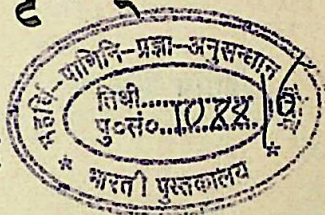 महर्षि-पाणिनि-प्रज्ञा-अनुसन्धान
तिथी..............
पु०सं०..1088........
* भारती पुस्तकालय *